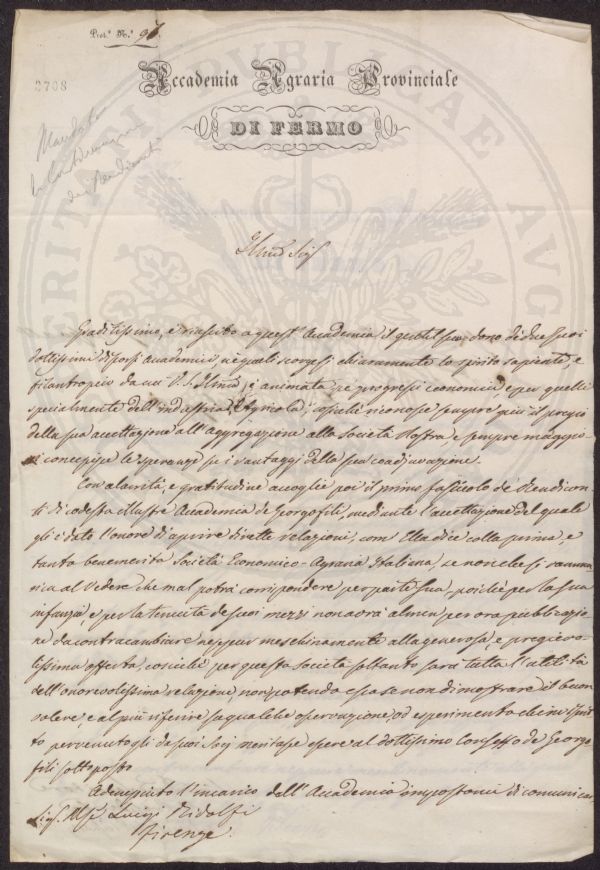 Prot.° N.° 96.
2708
Accademia Agraria Provinciale
DI FERMO
Mandato
la Continuazione
dei Rendiconti
Illmo Sig
Graditissimo, è riuscito a quest' Accademia il gentil suo dono de' due suoi
dottissimi discorsi Accademici ne' quali scorgesi chiaramente lo spirito sapiente, e
filantropico da cui V. S. Illma, è animata pe' progressi economici, e per quelli
specialmente dell' industria Agricola; a quali riconosce sempre più il pregio
della sua accettazione all' Aggregazione alla Società Nostra e sempre maggio-
ri concepisce le speranze pe' i vantaggi della sua coadiuvazione.
Con alacrità, e gratitudine accoglie poi il primo fascicolo de' Rendicon-
ti di codesta illustre Accademia de' Georgofili, mediante l' accettazione del quale
gli è dato l' onore di aprire dirette relazioni, com' Ella dice colla prima, e
tanto benemerita Società Economico-Agraria Italiana, se non che si ramma-
rica al vedere che mal potrà corrispondere per parte sua, poichè per la sua
infanzia, e per la tenuità de' suoi mezzi non avrà almen per ora pubblicazio-
ni da contracambiare neppur meschinamente alla generosa, e pregievo-
lissima offerta, cosichè per questa Società soltanto sarà tutta l' utilità
dell' onorevolissima relazione, non potendo essa se non dimostrare il buon
volere, e al più riferire se qualche osservazione, od esperimento
to pervenutogli da' suoi Socj meritasse essere al dottissimo Consesso de' Georgo-
fili sottoposto.
Adempiuto l' incarico dall' Accademia impostomi di comunicar-
Sig. Mse Luigi Ridolfi
Firenze.